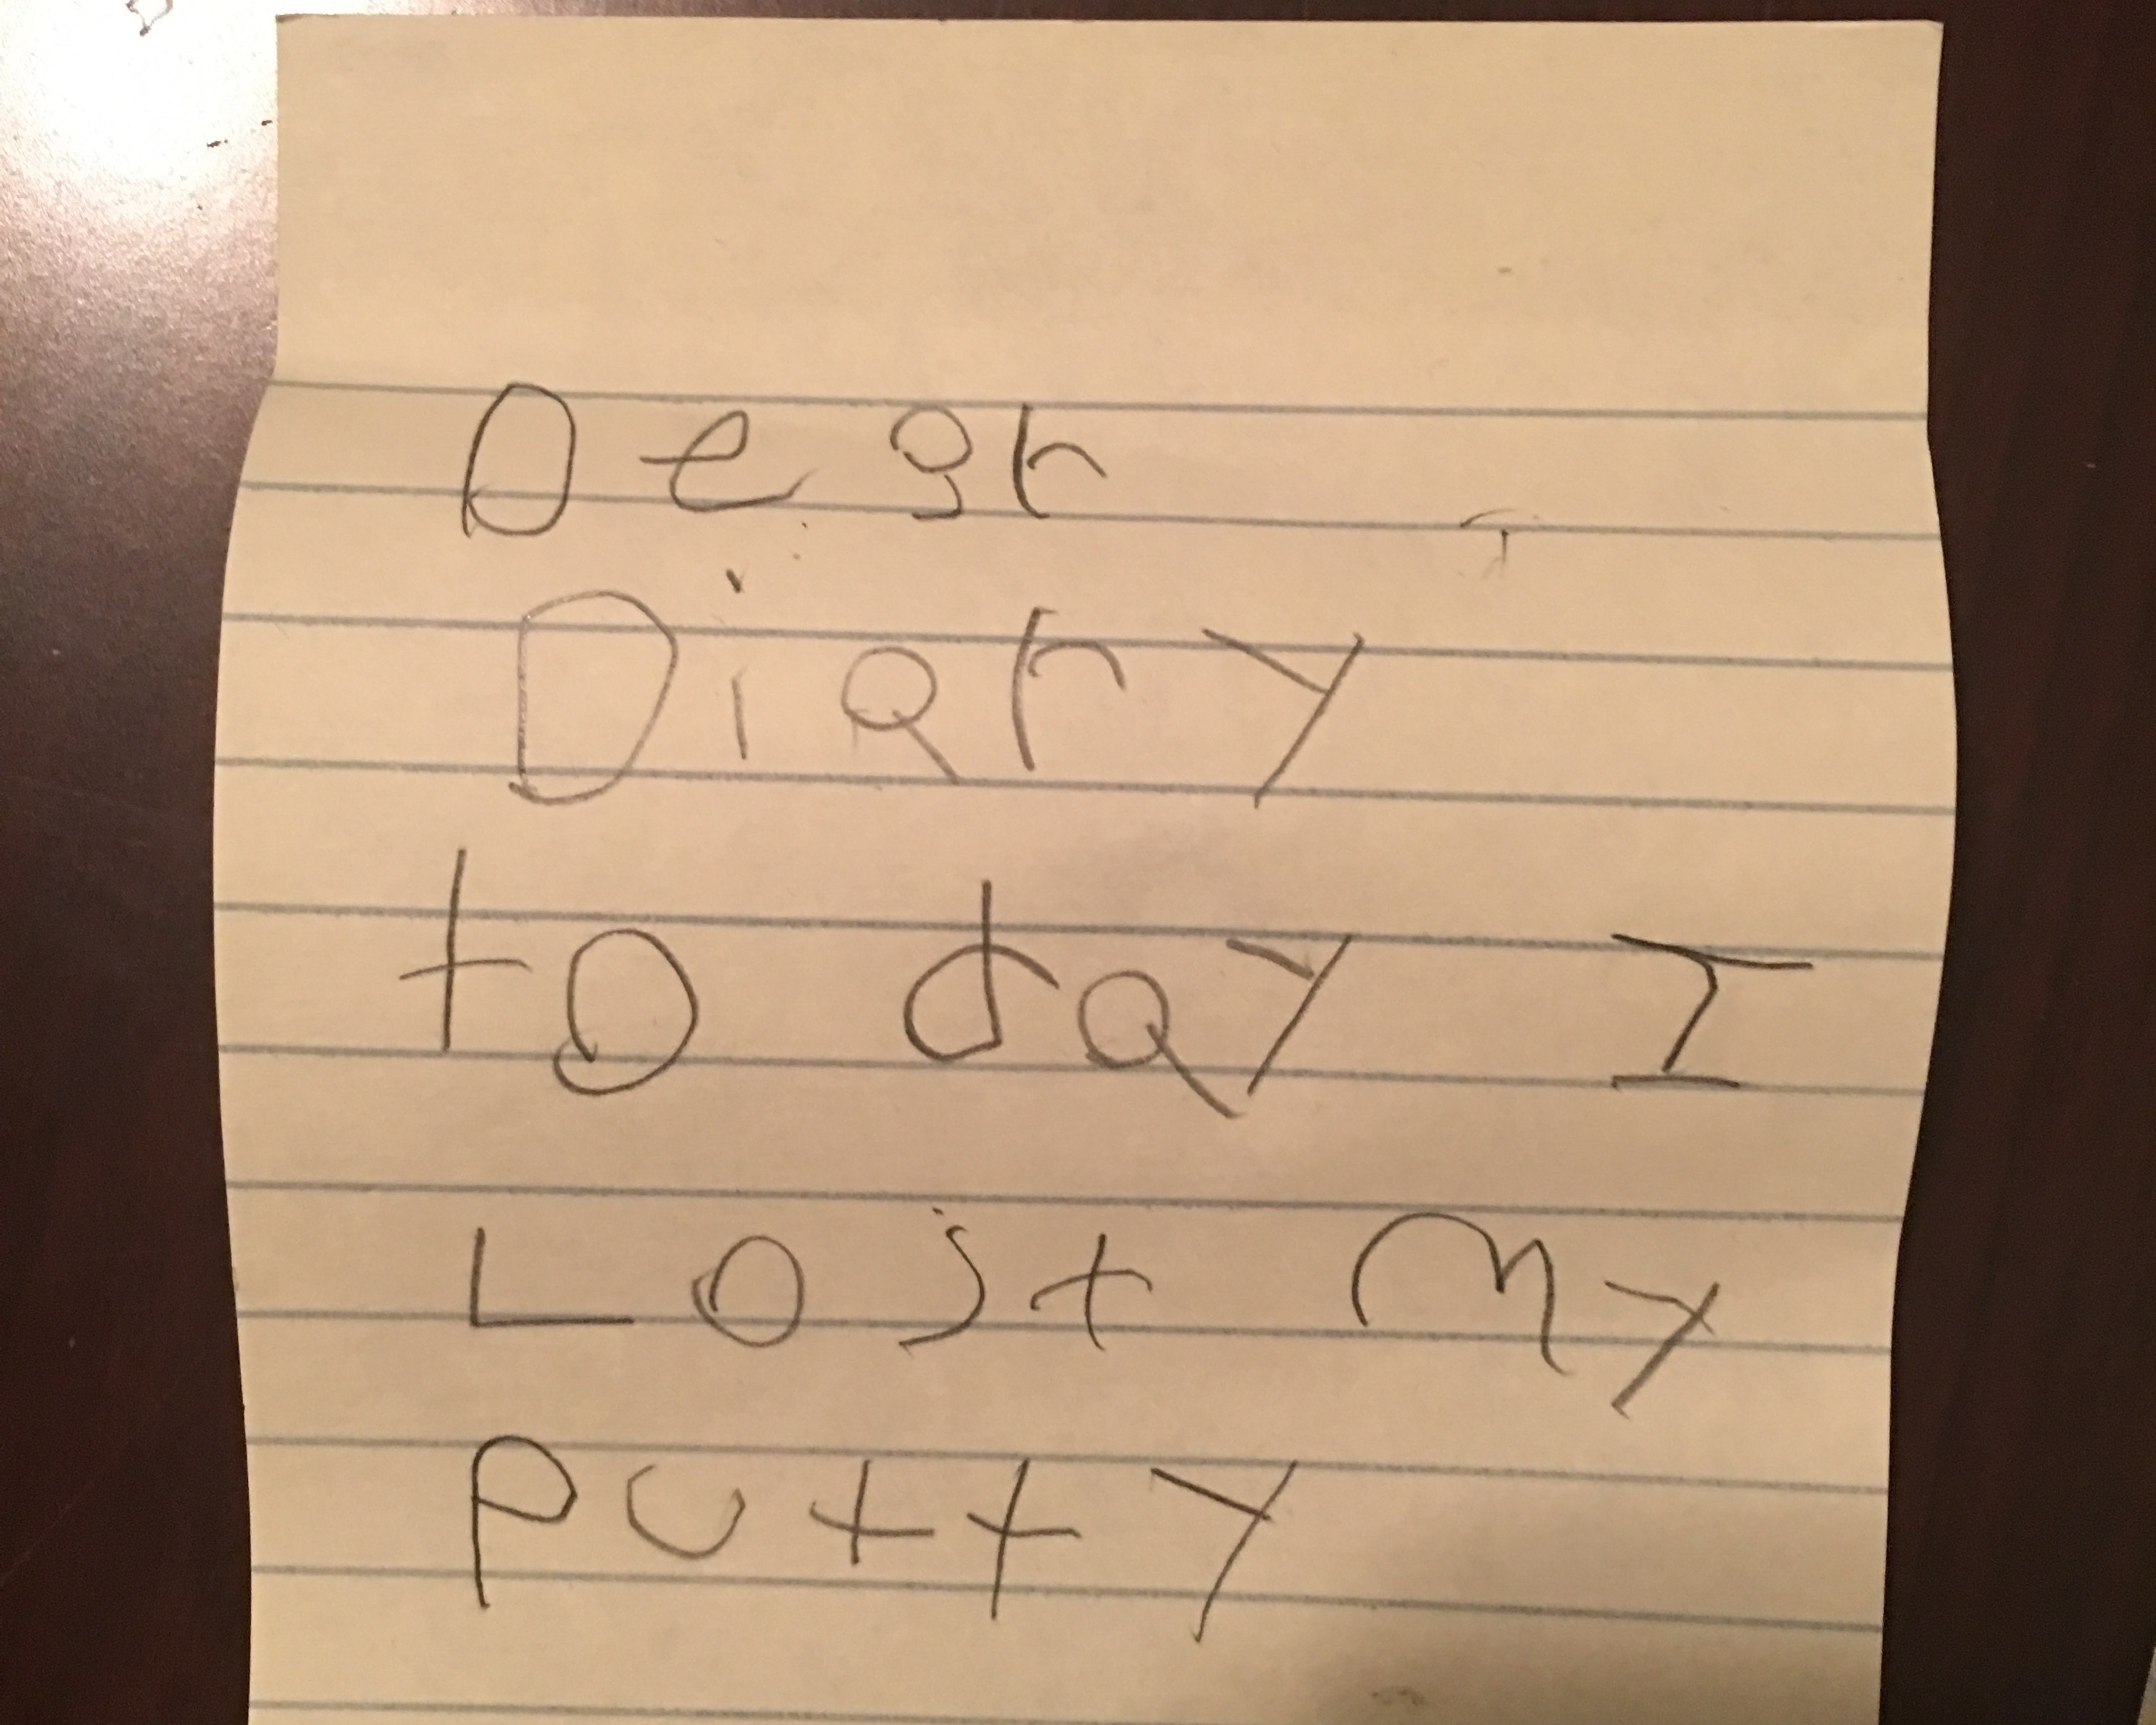 Dear
Diary
to day I
Lost my
Putty